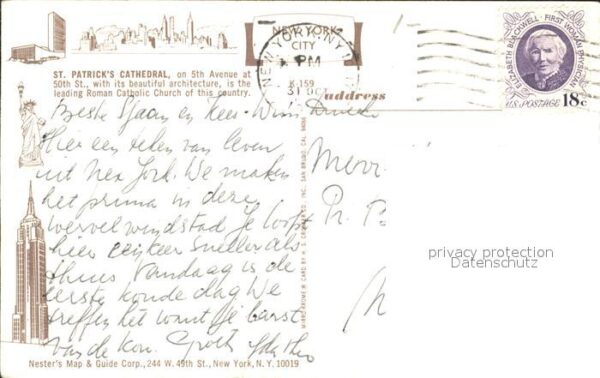 NEW YORK
CITY
NEW YORK, NY
PM
31 OC
ELIZABETH BLACKWELL · FIRST WOMAN PHYSICIAN
U.S. POSTAGE 18c
ST. PATRICK'S CATHEDRAL, on 5th Avenue at
50th St., with its beautiful architecture, is the
leading Roman Catholic Church of this country.
address
Beste Sjaan en Kees-Wim
Hier een teken van leven
uit New York. We maken
het prima in deze
wervelwindstad je loopt
hier sneller als
thuis Vandaag is de
eerste koude dag We
treffen het want je barst
van de kou. Groet
privacy protection
Datenschutz
Nester's Map & Guide Corp., 244 W. 49th St., New York, N.Y. 10019